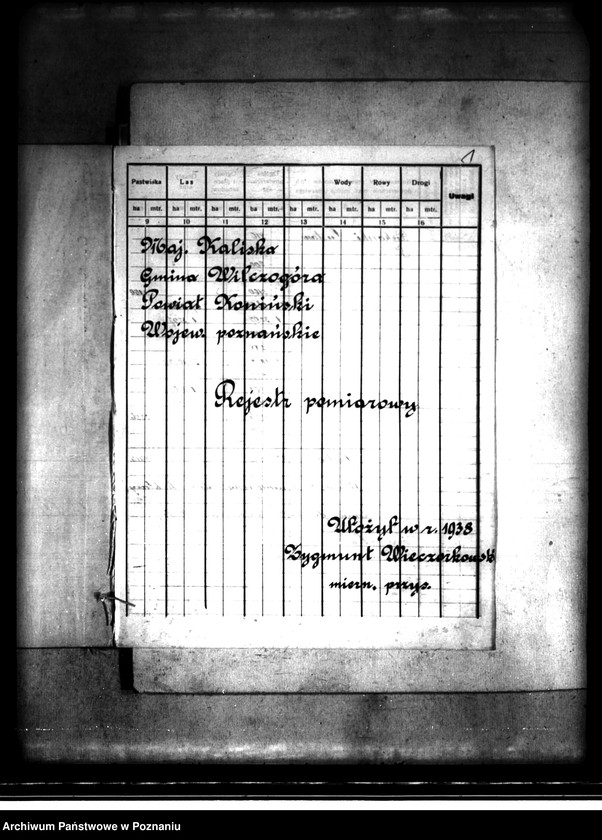 1
Pastwiska Las Wody Rowy Drogi Uwagi
ha mtr. ha mtr. ha mtr. ha mtr. ha mtr. ha mtr. ha mtr. ha mtr.
9 10 11 12 13 14 15 16
Maj. Kaliska
Gmina Wilczogóra
Powiat Koniński
Wojew. poznańskie
Rejestr pomiarowy
Ułożył w r. 1938
Zygmunt Wieczorkowski
miern. przys.
Archiwum Państwowe w Poznaniu